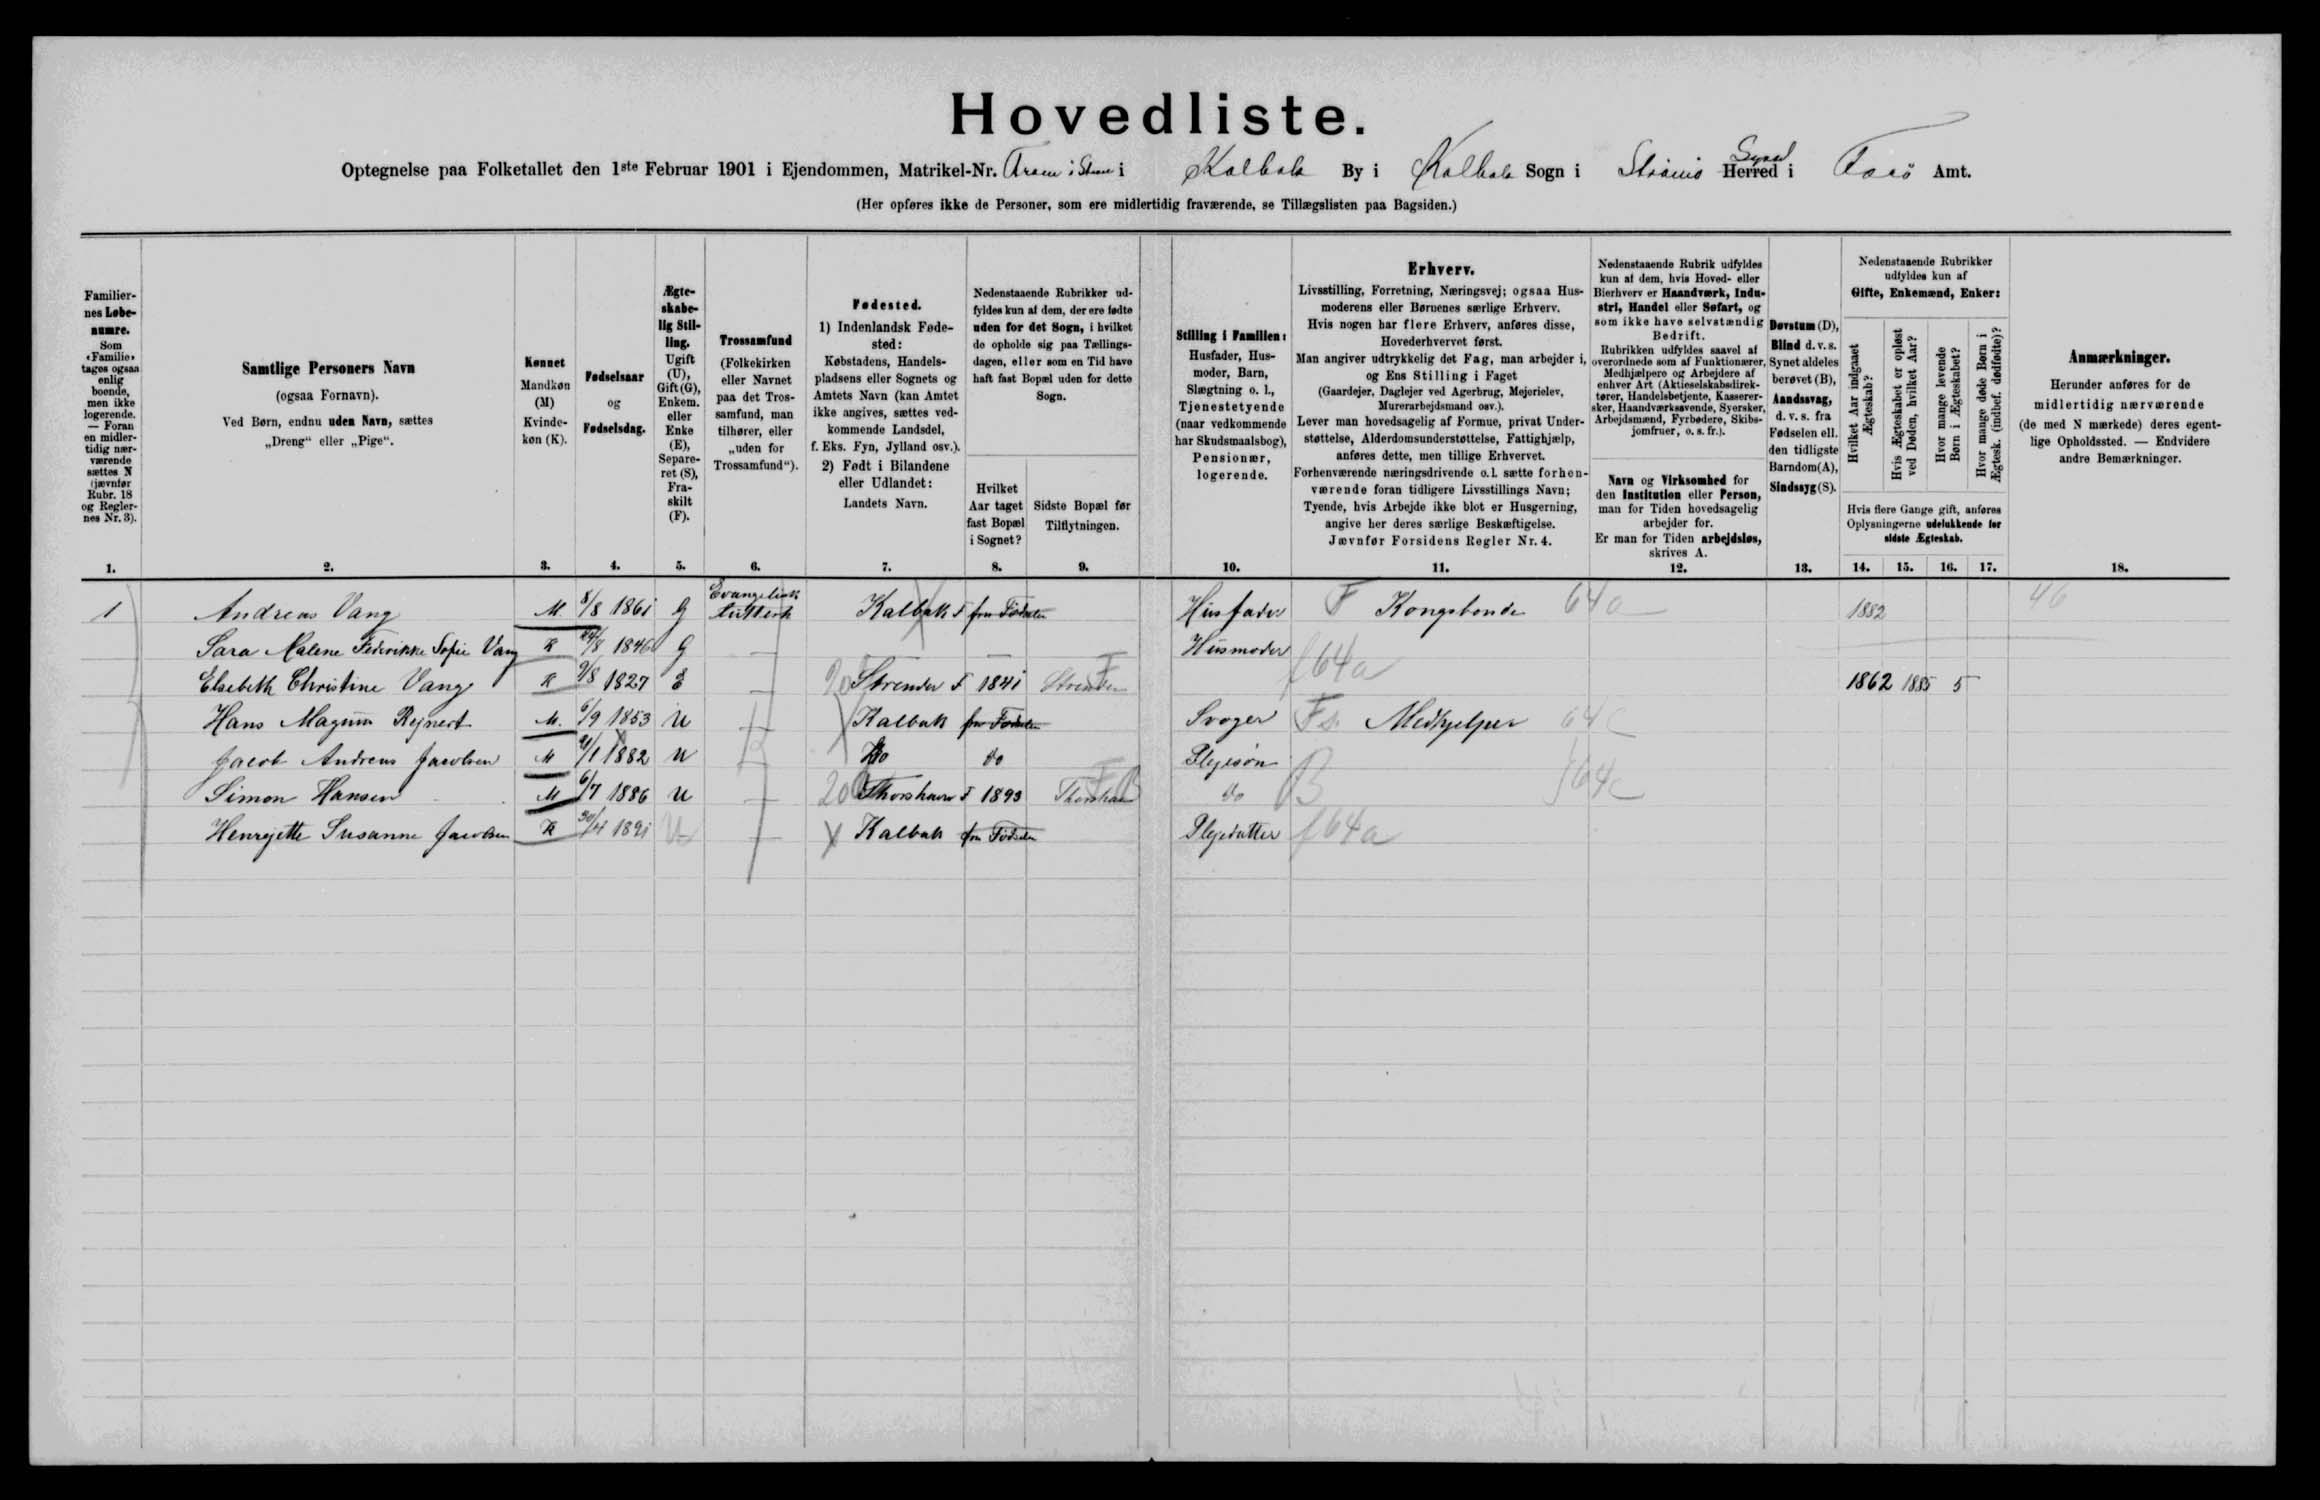 Hovedliste.
Optegnelse paa Folketallet den 1ste Februar 1901 i Ejendommen, Matrikel-Nr. i Kalbak By i Kalbak Sogn i Strømø Herred Syssel i Færø Amt.
(Her opføres ikke de Personer, som ere midlertidig fraværende, se Tillægslisten paa Bagsiden.)
Familier-
nes Løbe-
numre.
Som
«Familie»
tages ogsaa
enlig
boende,
men ikke
logerende.
— Foran
en midler-
tidig nær-
værende
sættes N
(jævnfør
Rubr. 18
og Regler-
nes Nr. 3).
1.
Samtlige Personers Navn
(ogsaa Fornavn).
Ved Børn, endnu uden Navn, sættes
„Dreng“ eller „Pige“.
2.
Kønnet
Mandkøn
(M)
Kvinde-
køn (K).
3.
Fødselsaar
og
Fødselsdag.
4.
Ægte-
skabe-
lig Stil-
ling.
Ugift
(U),
Gift (G),
Enkem.
eller
Enke
(E),
Separe-
ret (S),
Fra-
skilt
(F).
5.
Trossamfund
(Folkekirken
eller Navnet
paa det Tros-
samfund, man
tilhører, eller
„uden for
Trossamfund“).
6.
Fødested.
1) Indenlandsk Føde-
sted:
Købstadens, Handels-
pladsens eller Sognets og
Amtets Navn (kan Amtet
ikke angives, sættes ved-
kommende Landsdel,
f. Eks. Fyn, Jylland osv.).
2) Født i Bilandene
eller Udlandet:
Landets Navn.
7.
Nedenstaaende Rubrikker ud-
fyldes kun af dem, der ere fødte
uden for det Sogn, i hvilket
de opholde sig paa Tællings-
dagen, eller som en Tid have
haft fast Bopæl uden for dette
Sogn.
Hvilket
Aar taget
fast Bopæl
i Sognet?
8.
Sidste Bopæl før
Tilflytningen.
9.
Stilling i Familien:
Husfader, Hus-
moder, Barn,
Slægtning o. l.,
Tjenestetyende
(naar vedkommende
har Skudsmaalsbog),
Pensionær,
logerende.
10.
Erhverv.
Livsstilling, Forretning, Næringsvej; ogsaa Hus-
moderens eller Børnenes særlige Erhverv.
Hvis nogen har flere Erhverv, anføres disse,
Hovederhvervet først.
Man angiver udtrykkelig det Fag, man arbejder i,
og Ens Stilling i Faget
(Gaardejer, Daglejer ved Agerbrug, Mejerielev,
Murerarbejdsmand osv.).
Lever man hovedsagelig af Formue, privat Under-
støttelse, Alderdomsunderstøttelse, Fattighjælp,
anføres dette, men tillige Erhvervet.
Forhenværende næringsdrivende o. l. sætte forhen-
værende foran tidligere Livsstillings Navn;
Tyende, hvis Arbejde ikke blot er Husgerning,
angive her deres særlige Beskæftigelse.
Jævnfør Forsidens Regler Nr. 4.
11.
Nedenstaaende Rubrik udfyldes
kun af dem, hvis Hoved- eller
Bierhverv er Haandværk, Indu-
stri, Handel eller Søfart, og
som ikke have selvstændig
Bedrift.
Rubrikken udfyldes saavel af
overordnede som af Funktionærer,
Medhjælpere og Arbejdere af
enhver Art (Aktieselskabsdirek-
tører, Handelsbetjente, Kasserer-
sker, Haandværkssvende, Syersker,
Arbejdsmænd, Fyrbødere, Skibs-
jomfruer, o. s. fr.).
Navn og Virksomhed for
den Institution eller Person,
man for Tiden hovedsagelig
arbejder for.
Er man for Tiden arbejdsløs,
skrives A.
12.
Døvstum (D),
Blind d. v. s.
Synet aldeles
berøvet (B),
Aandssvag,
d. v. s. fra
Fødselen ell.
den tidligste
Barndom (A),
Sindssyg (S).
13.
Nedenstaaende Rubrikker
udfyldes kun af
Gifte, Enkemænd, Enker:
Hvilket Aar indgaaet
Ægteskab?
Hvis Ægteskabet er opløst
ved Døden, hvilket Aar?
Hvor mange levende
Børn i Ægteskabet?
Hvor mange døde Børn i
Ægtesk. (indbef. dødfødte)?
Hvis flere Gange gift, anføres
Oplysningerne udelukkende for
sidste Ægteskab.
14. 15. 16. 17.
Anmærkninger.
Herunder anføres for de
midlertidig nærværende
(de med N mærkede) deres egent-
lige Opholdssted. — Endvidere
andre Bemærkninger.
18.
1 Andreas Vang M. 8/8 1861 G Evangelisk Luthersk Kalbak F fra Fødselen Husfader F Kongsbonde 64a 1882 46
Sara Malene Federikke Sofie Vang K 24/8 1846 G — — — Husmoder
Elsebeth Christine Vang K 9/8 1827 E — 20 Strender F 1841 Strender F f64a 1862 1885 5
Hans Magnus Rejnert M. 6/9 1853 U Kalbak fra Fødselen Svoger Fs. Medhjelper 64c
Jacob Andreas Jacobsen M 21/1 1882 U Do do Plejesøn
Simon Hansen M 6/7 1886 U — 20 Thorshavn F 1893 Thorshavn do B f64c
Henrejette Susanne Jacobsen K 30/4 1891 U Kalbak fra Fødselen Plejedatter f64a